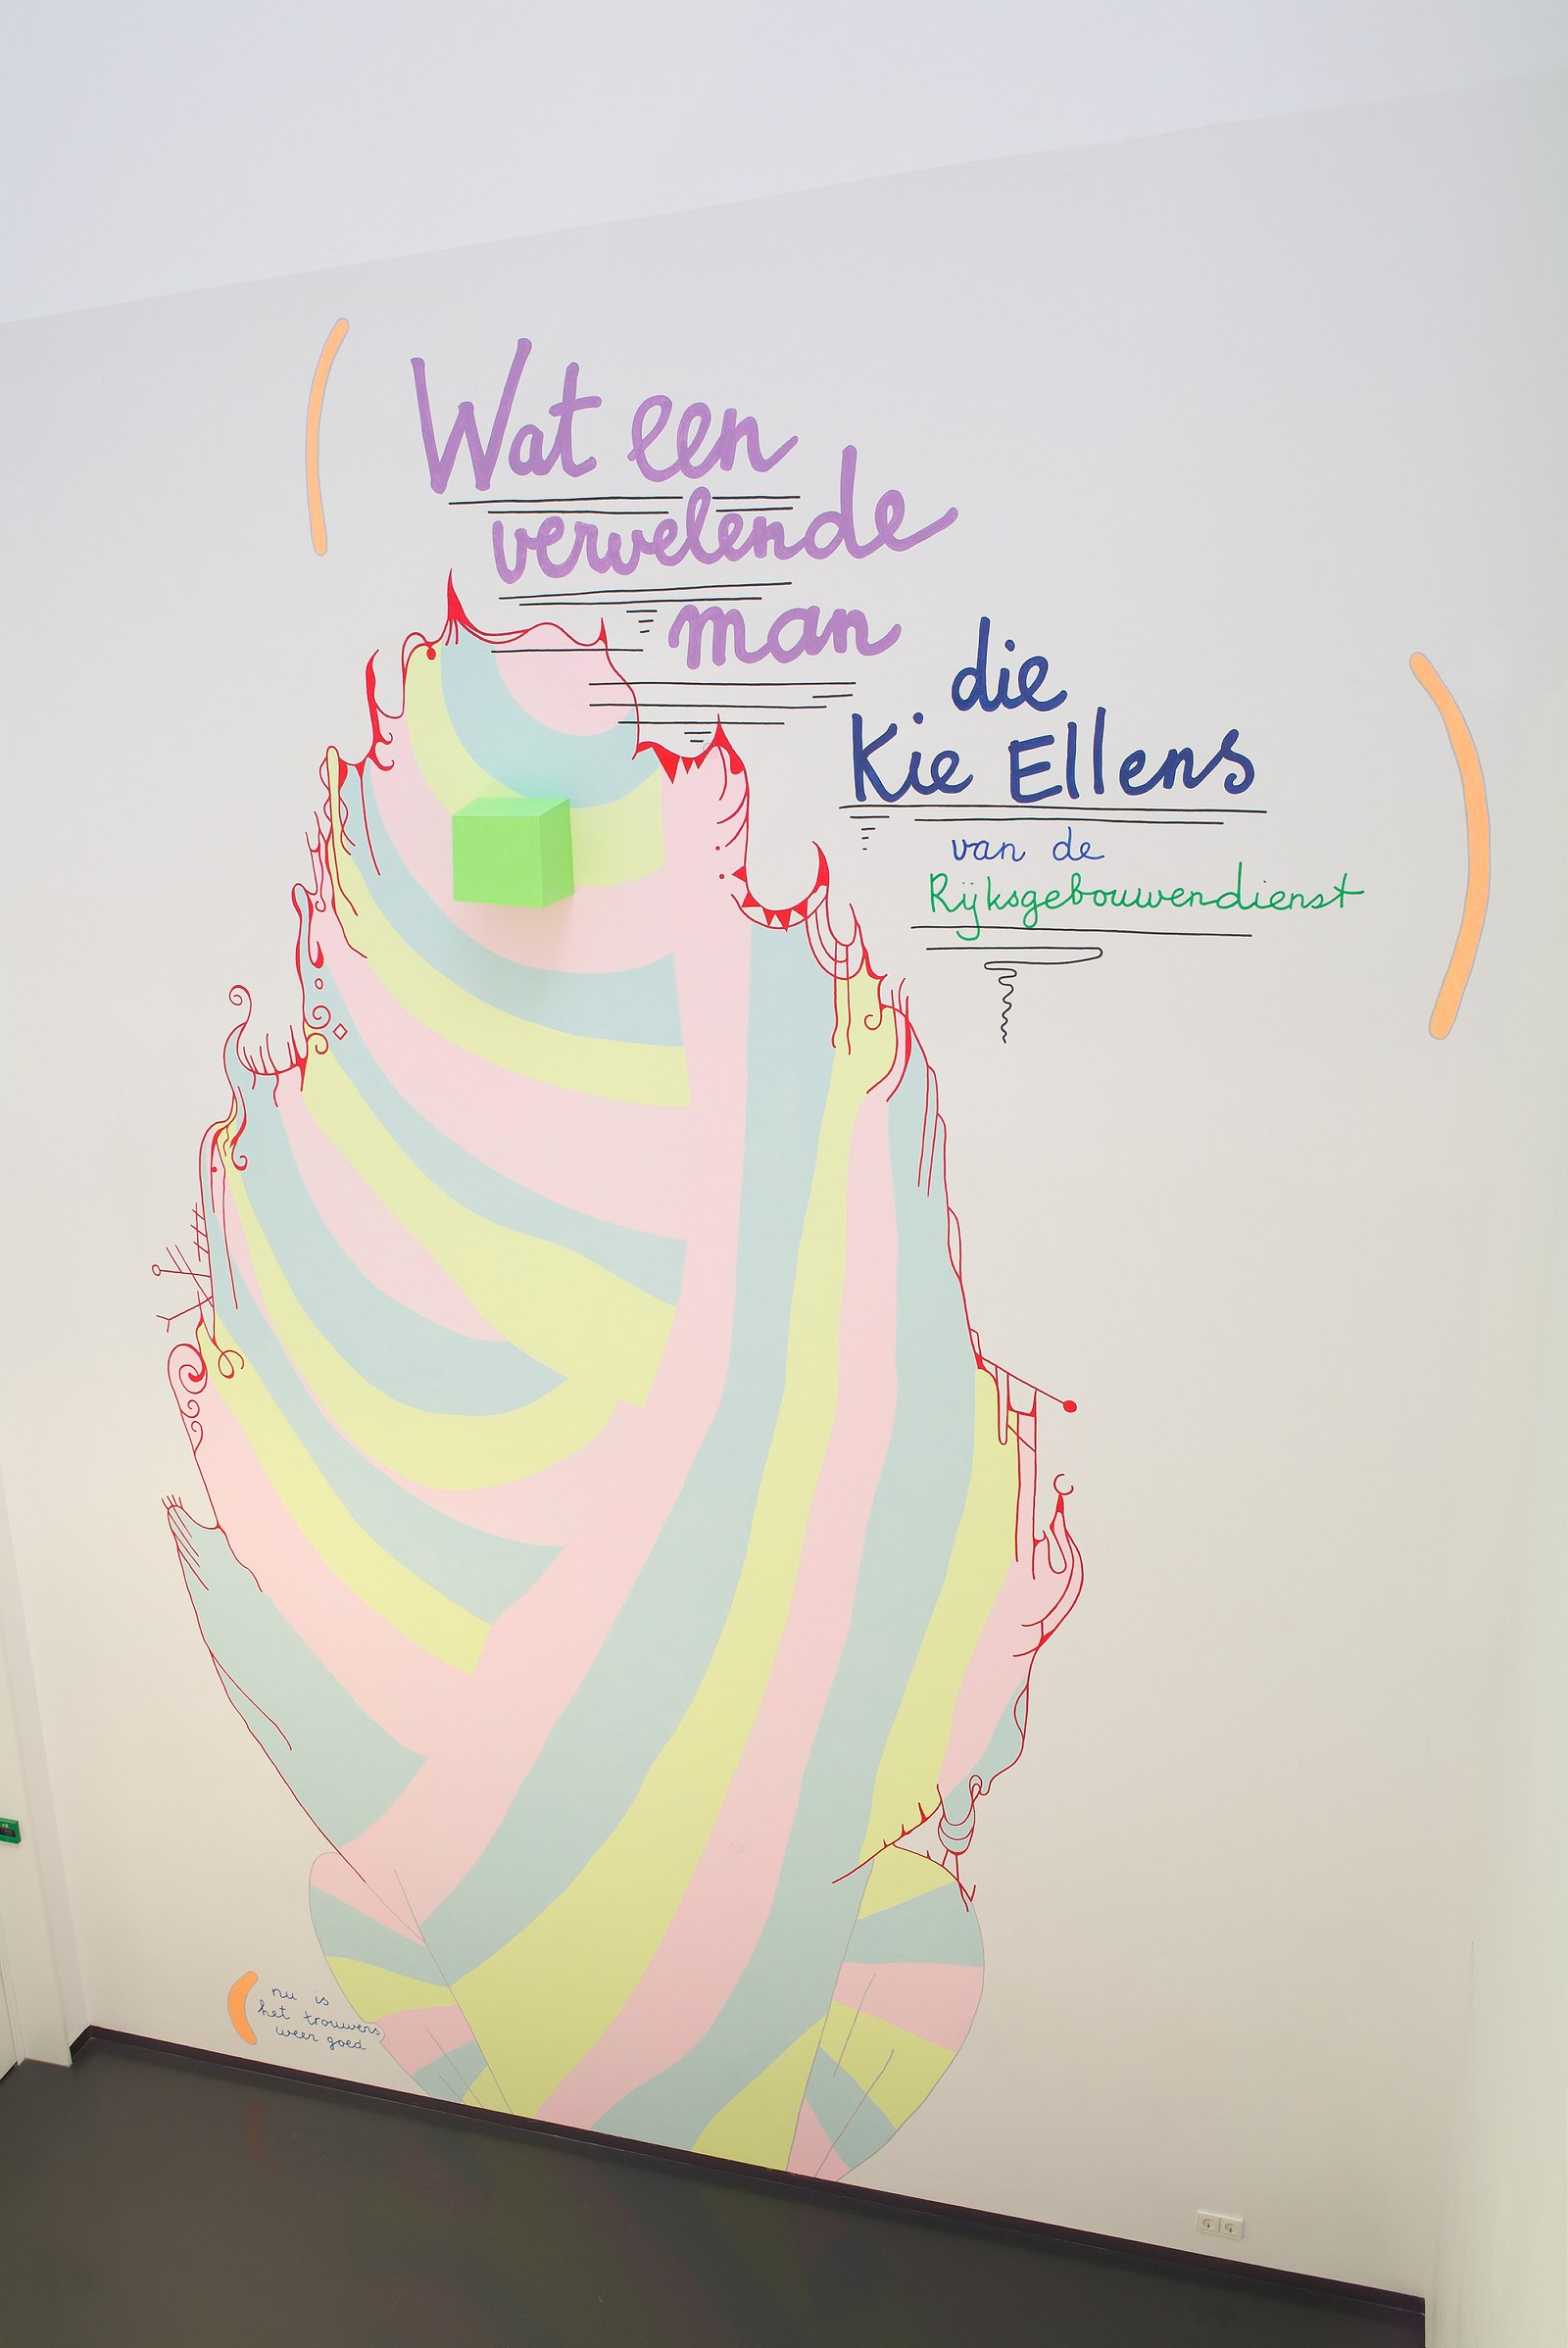 ( Wat een
vervelende
man
die
Kie Ellens
van de
Rijksgebouwendienst )
( nu is
het trouwens
weer goed